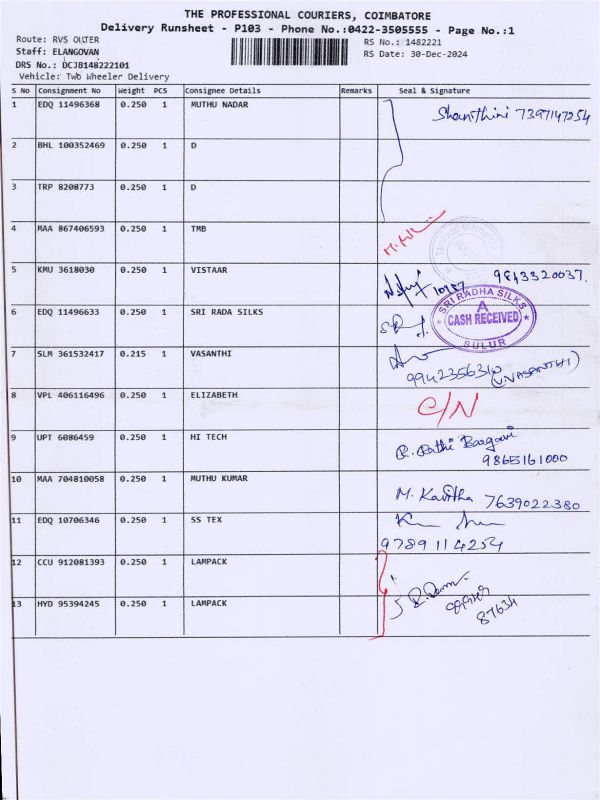 THE PROFESSIONAL COURIERS, COIMBATORE
Delivery Runsheet - P103 - Phone No.:0422-3505555 - Page No.:1
Route: RVS OUTER
RS No.: 1482221
Staff: ELANGOVAN
RS Date: 30-Dec-2024
DRS No.: DCJB148222101
Vehicle: Two Wheeler Delivery
S No Consignment No Weight PCS Consignee Details Remarks Seal & Signature
1 EDQ 11496368 0.250 1 MUTHU NADAR Shanthini 7397147254
2 BHL 100352469 0.250 1 D
3 TRP 8208773 0.250 1 D
4 MAA 867406593 0.250 1 TMB
5 KMU 3618030 0.250 1 VISTAAR 10987 9843320037.
6 EDQ 11496633 0.250 1 SRI RADA SILKS
SRI RADHA SILKS
A
CASH RECEIVED
SULUR
7 SLM 361532417 0.215 1 VASANTHI
9942356310
(VASANTHI)
8 VPL 406116496 0.250 1 ELIZABETH C/N
9 UPT 6086459 0.250 1 HI TECH R. Rathi
9865161000
10 MAA 704810058 0.250 1 MUTHU KUMAR M. Kavitha 7639022380
11 EDQ 10706346 0.250 1 SS TEX
9789114254
12 CCU 912081393 0.250 1 LAMPACK
13 HYD 95394245 0.250 1 LAMPACK
87634